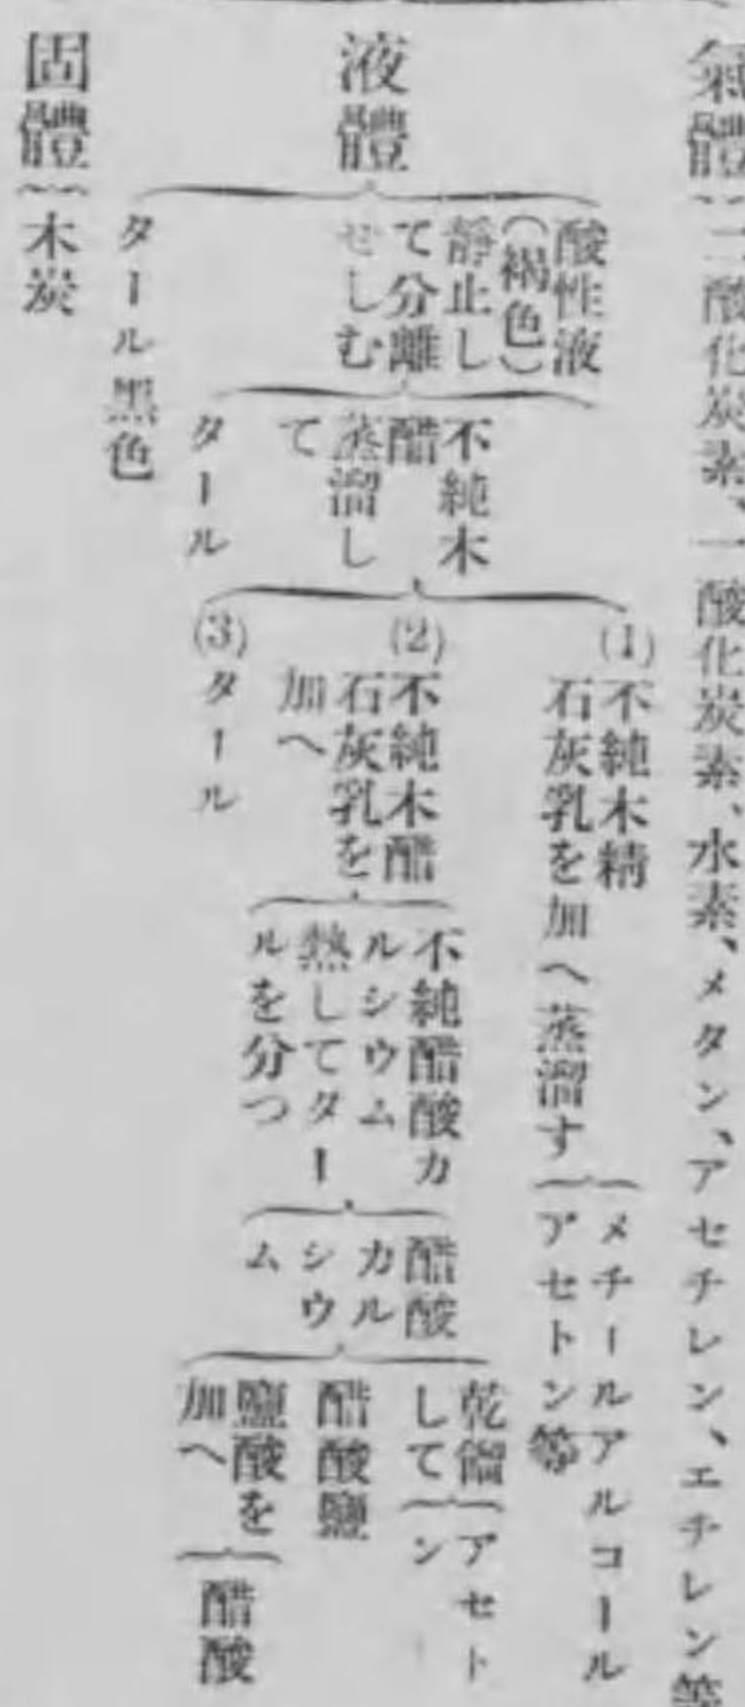 氣體
二酸化炭素、一酸化炭素、水素、メタン、アセチレン、エチレン等
液體
酸性液
(褐色)
靜止し
て分離
せしむ
不純木
醋
蒸溜し
て
(1)
不純木精
石灰乳を加へ蒸溜す
メチールアルコール
アセトン等
(2)
不純木醋
石灰乳を
加へ
不純醋酸カ
ルシウム
熱してター
ルを分つ
醋酸
カル
シウ
ム
乾餾
して
アセト
ン
醋酸鹽
鹽酸を
加へ
醋酸
(3)
タール
タール
タール黑色
固體
木炭